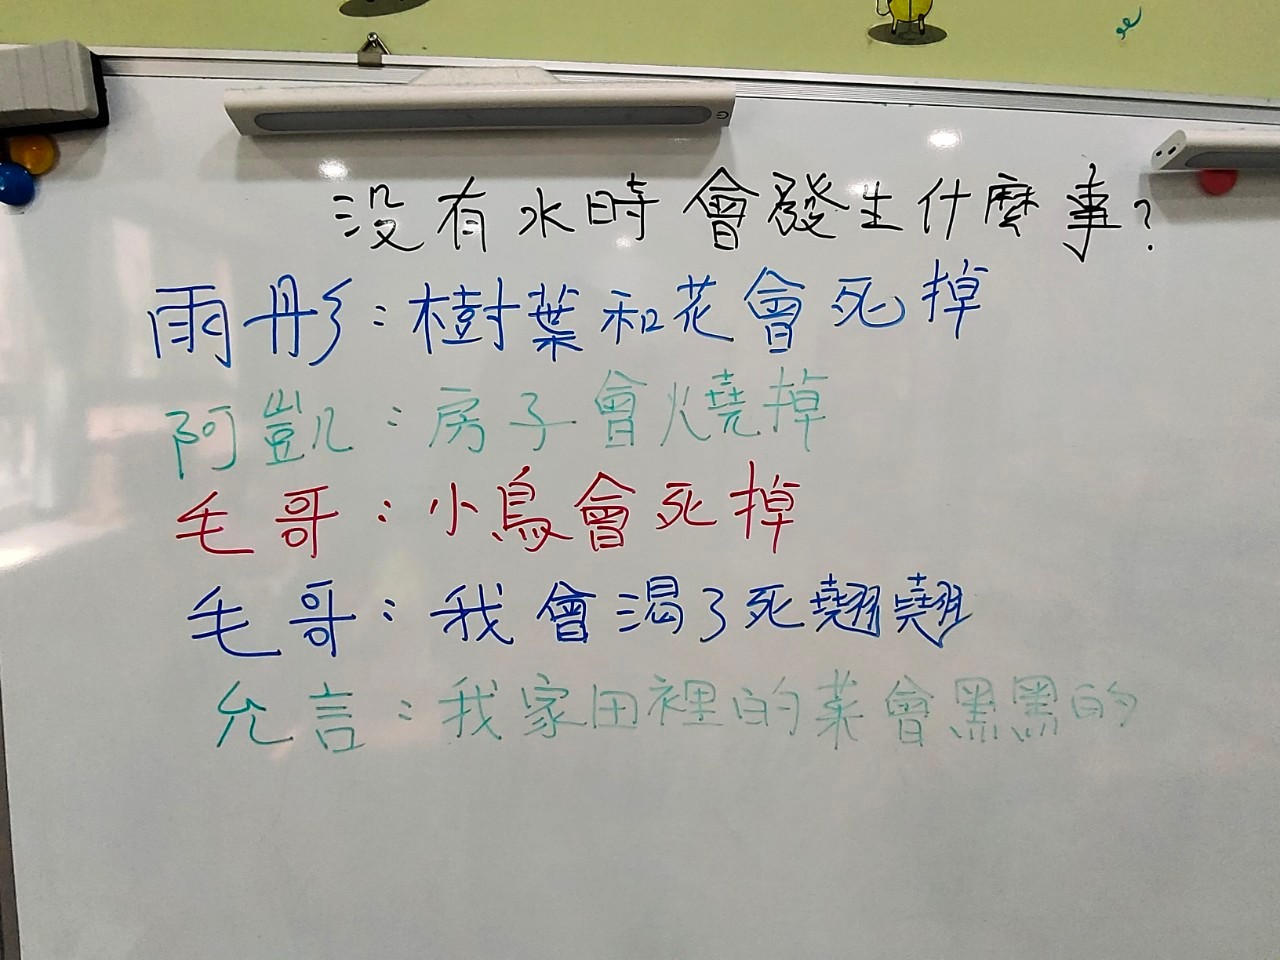 没有水時會發生什麼事?
雨彤:樹葉和花會死掉
阿凱:房子會燒掉
毛哥:小鳥會死掉
毛哥:我會渴了死翹翹
允言:我家田裡的菜會黑黑的